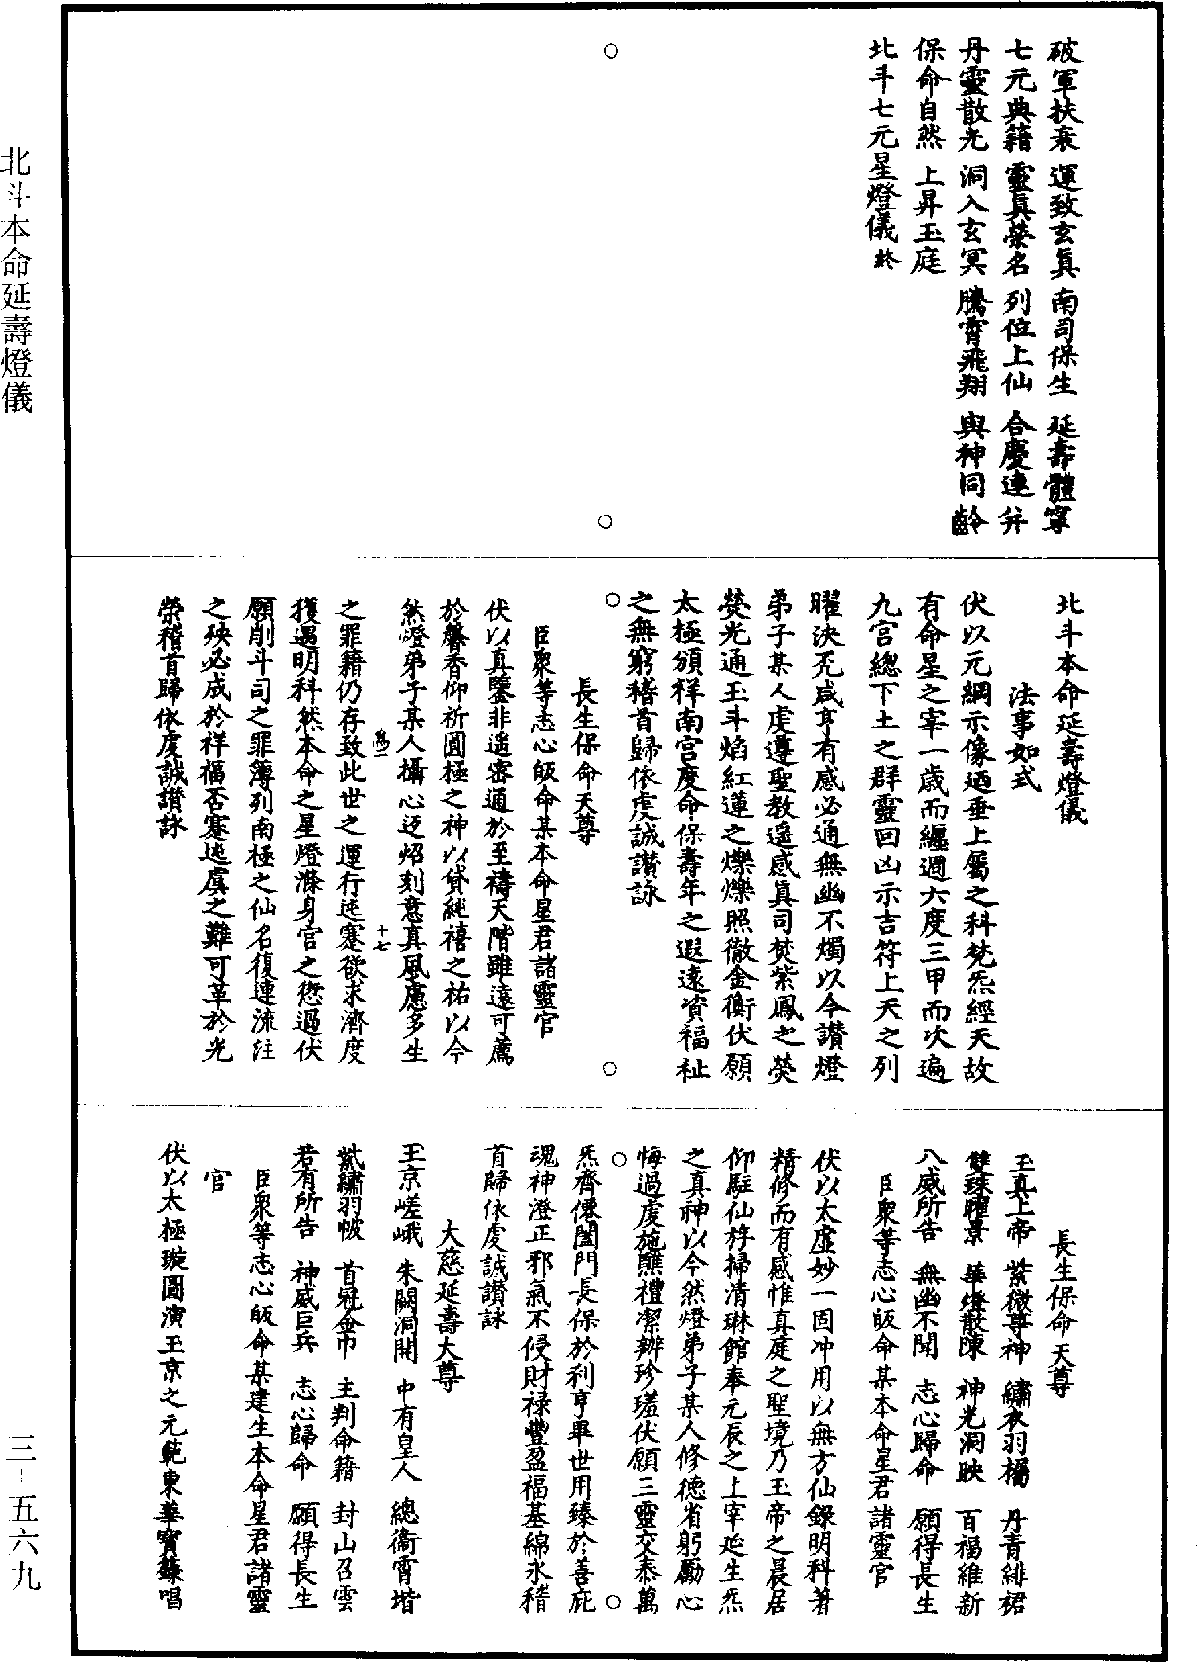 破軍扶衰　運致玄真　南司保生　延壽體寧
七元典籍　靈真榮名　列位上仙　合慶連并
丹靈散光　洞入玄冥　騰霄飛翔　與神同齡
保命自然　上昇玉庭
北斗七元星燈儀終
北斗本命延壽燈儀
法事如式
伏以元綱示像迺垂上屬之科梵炁經天故
有命星之宰一歲而纏週六度三甲而次遍
九宮總下土之群靈回凶示吉符上天之列
曜決死咸亨有感必通無幽不燭以今讚燈
弟子某人虔遵聖教遙感真司焚紫鳳之熒
熒光通玉斗焰紅蓮之爍爍照徹金衡伏願
太極頒祥南宮度命保壽年之遐遠資福祉
之無窮稽首歸依虔誠讚詠
長生保命天尊
臣眾等志心皈命某本命星君諸靈官
伏以真鑒非遥密通於至禱天階雖遠可薦
於馨香仰祈圓極之神以貸純禧之祐以今
然燈弟子某人攝心迓炤刻意真風慮多生
十七
之罪籍仍存致此世之運行迍蹇欲求濟度
獲遇明科然本命之星燈滌身宮之愆過伏
願削斗司之罪簿列南極之仙名復連流注
之殃必成於祥福否蹇迍虞之難可革於光
榮稽首歸依虔誠讚詠
長生保命天尊
玉真上帝　紫微尊神　繡衣羽褐　丹青緋裙
雙珠曜景　華燈散陳　神光洞映　百福維新
八威所告　無幽不聞　志心歸命　願得長生
臣眾等志心皈命某本命星君諸靈官
伏以太虛妙一固冲用以無方仙錄明科著
精修而有感惟真庭之聖境乃玉帝之晨居
仰駐仙輧掃清琳館奉元辰之上宰延生炁
之真神以今然燈弟子某人修德省躬勵心
悔過虔施醮禮潔辦珍羞伏願三靈交泰萬
炁齊僊闔門長保於利亨畢世用臻於善庇
魂神澄正邪氣不侵財祿豐盈福基綿永稽
首歸依虔誠讚詠
大慈延壽大尊
玉京嵯峨　朱闕洞開　中有皇人　總衛霄堦
紫繡羽帔　首冠金巾　主判命籍　封山召雲
若有所告　神威巨兵　志心歸命　願得長生
臣眾等志心皈命某建生本命星君諸靈
官
伏以太極璇圖演玉京之元範東華寶籙唱
北斗本命延壽燈儀
三-五六九